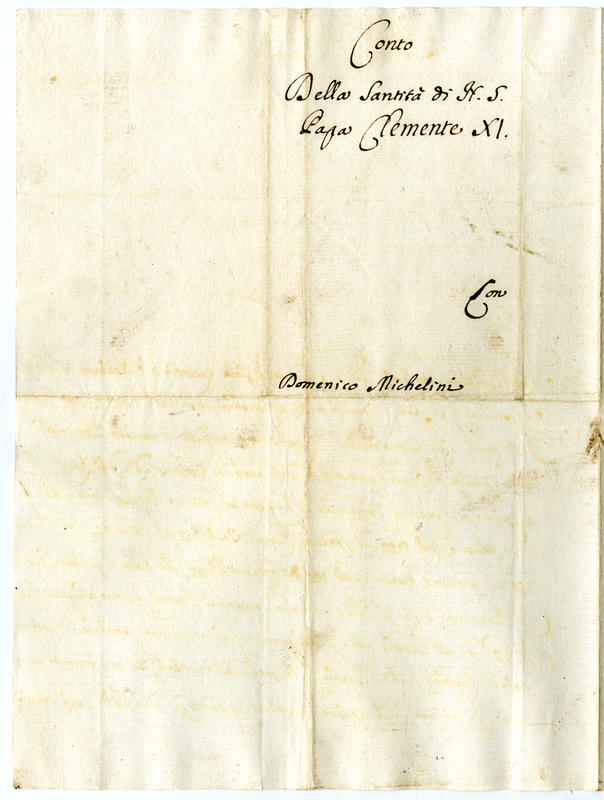 Conto
Della Santità di N. S.
Papa Clemente XI.
Con
Domenico Michelini